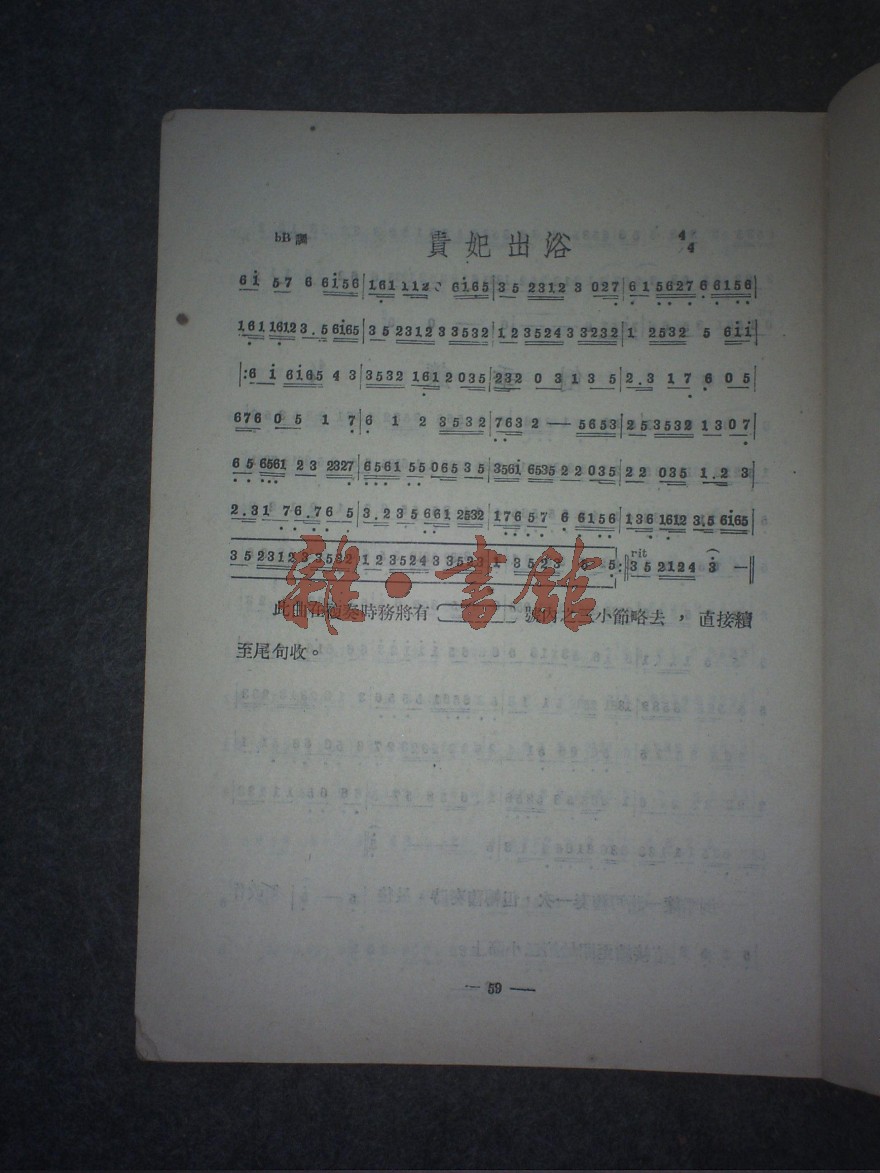 bB調 貴妃出浴 4/4
6 i 5 7 6 6 i 5 6 | 1 6 1 1 1 2 6 i 6 5 | 3 5 2 3 1 2 3 0 2 7 | 6 1 5 6 2 7 6 6 1 5 6 |
1 6 1 1 6 1 2 3 . 5 6 i 6 5 | 3 5 2 3 1 2 3 3 5 3 2 | 1 2 3 5 2 4 3 3 2 3 2 | 1 2 5 3 2 5 6 i i |
|: 6 i 6 i 6 5 4 3 | 3 5 3 2 1 6 1 2 0 3 5 | 2 3 2 0 3 1 3 5 | 2 . 3 1 7 6 0 5 |
6 7 6 0 5 1 7 | 6 1 2 3 5 3 2 | 7 6 3 2 — — 5 6 5 3 | 2 5 3 5 3 2 1 3 0 7 |
6 5 6 5 6 1 2 3 2 3 2 7 | 6 5 6 1 5 5 0 6 5 3 5 | 3 5 6 i 6 5 3 5 2 2 0 3 5 | 2 2 0 3 5 1 . 2 3 |
2 . 3 1 7 6 . 7 6 5 | 3 . 2 3 5 6 6 1 2 5 3 2 | 1 7 6 5 7 6 6 1 5 6 | 1 3 6 1 6 1 2 3 . 5 6 i 6 5 |
3 5 2 3 1 2 3 3 5 3 2 | 1 2 3 5 2 4 3 3 5 2 3 | 1 3 5 2 3 5 5 :|| rit 3 5 2 1 2 4 3 — ||
此曲在演奏時務將有 號內之三小節略去，直接續
至尾句收。
雜·書館
— 59 —